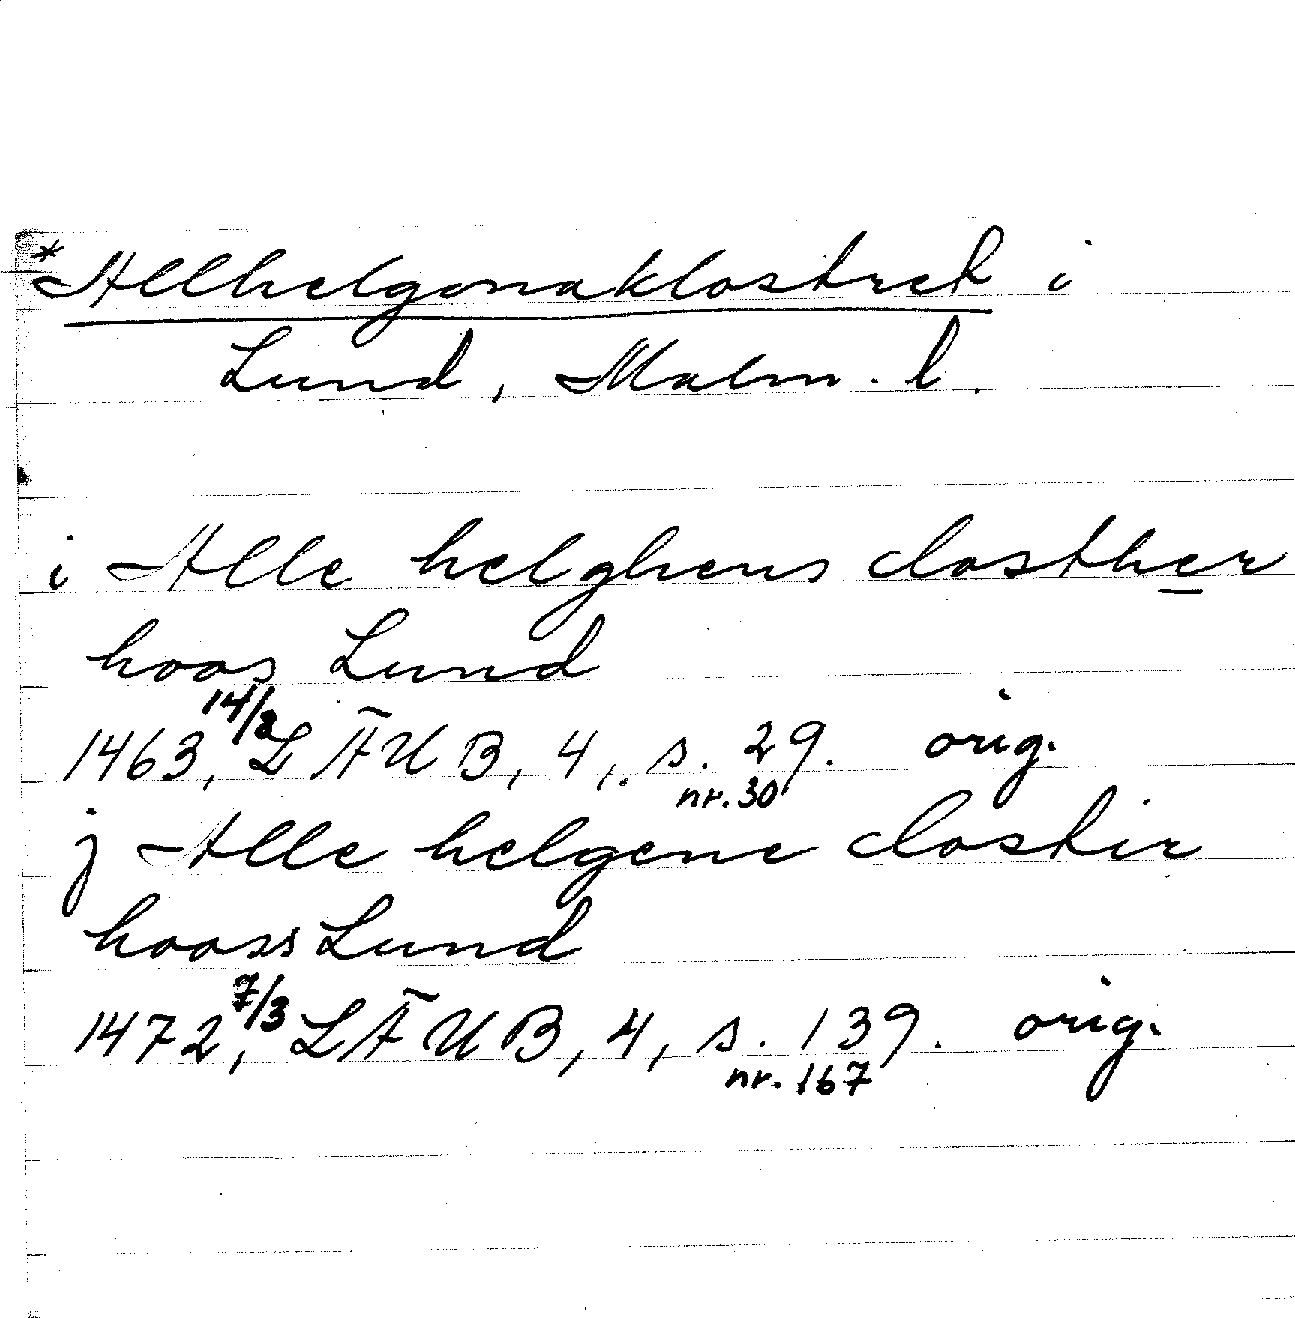 *Allhelgonaklostret i
Lund, Malm. l.
i Alle helghens closther
hoos Lund
1463, 14/2 LÄUB, 4, s. 29. orig.
nr. 30
j Alle helgene closter
hooss Lund
1472, 7/3 LÄUB, 4, s. 139. orig.
nr. 167